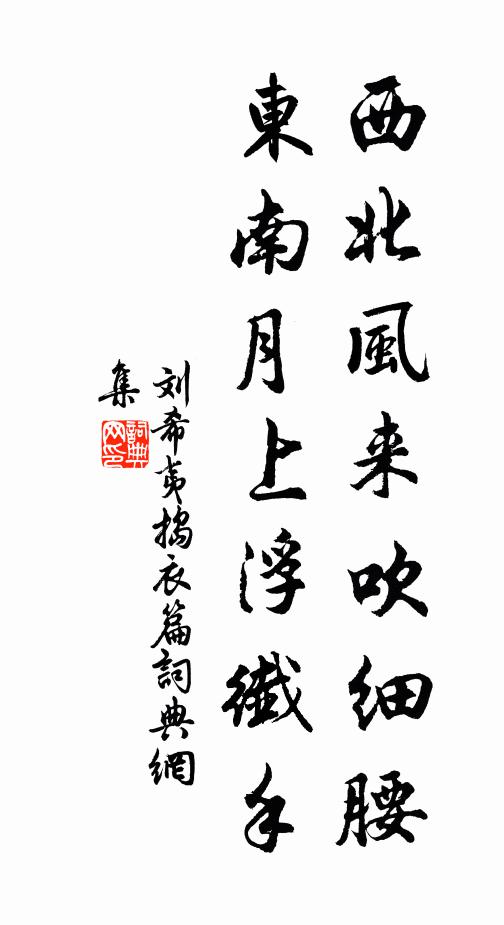 西北風来吹细腰
東南月上浮纖手
刘希夷搗衣篇詞典網
集
詞典
网印